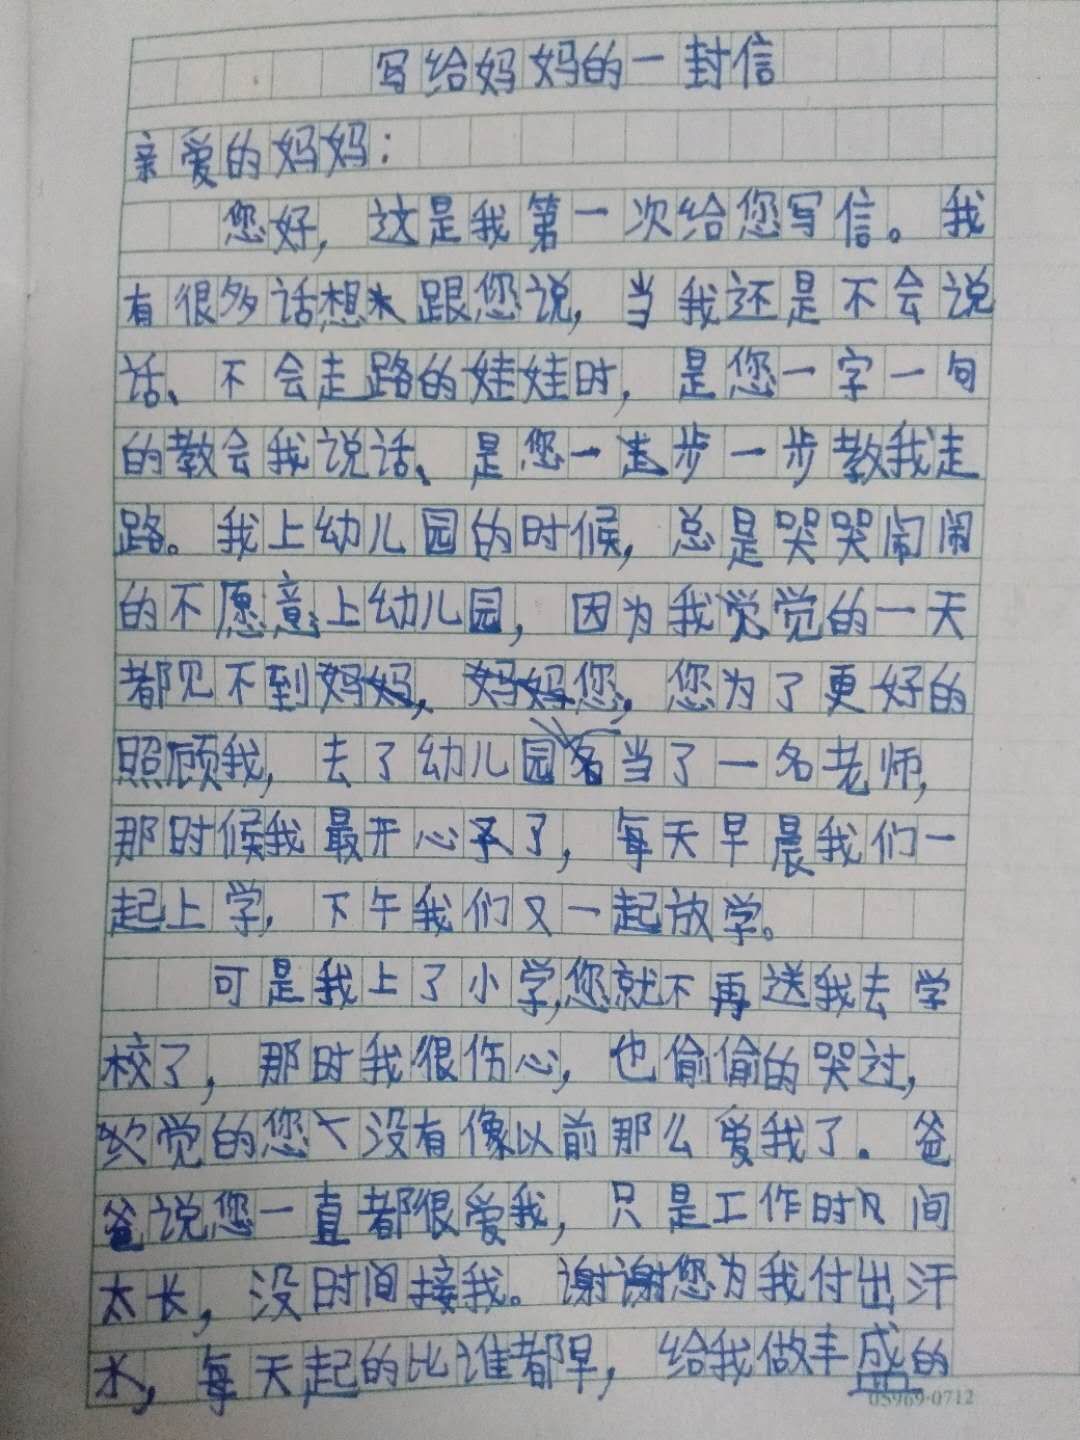 写给妈妈的一封信
亲爱的妈妈：
您好，这是我第一次给您写信。我
有很多话想跟您说，当我还是不会说
话、不会走路的娃娃时，是您一字一句
的教会我说话、是您一步一步教我走
路。我上幼儿园的时候，总是哭哭闹闹
的不愿意上幼儿园，因为我觉觉的一天
都见不到妈妈，您，您为了更好的
照顾我，去了幼儿园当了一名老师，
那时候我最开心了，每天早晨我们一
起上学，下午我们又一起放学。
可是我上了小学，您就不再送我去学
校了，那时我很伤心，也偷偷的哭过，
觉的您没有像以前那么爱我了。爸
爸说您一直都很爱我，只是工作时间
太长，没时间接我。谢谢您为我付出汗
水，每天起的比谁都早，给我做丰盛的
05969-0712